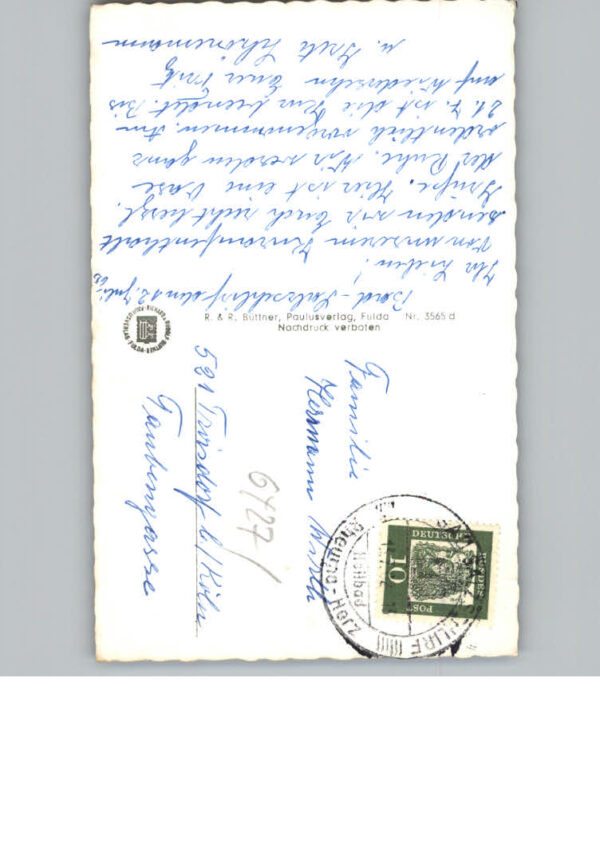 Bad-Salzschlirf den 12. Juli 62
Ihr Lieben!
Von unserem Kuraufenthalt
senden wir Euch recht herzl.
Grüße. Hier ist eine Oase
der Ruhe. Wir werden ganz
ordentlich rangenommen. Am
21. 7. ist die Kur beendet. Bis
auf Wiedersehn Euer Fritz
u. Greti Schönemann
R. & R. Büttner, Paulusverlag, Fulda Nr. 3565 d
Nachdruck verboten
Familie
Hermann Wirth
521 Troisdorf b/Köln
Taubengasse
6427/
DEUTSCHE
BUNDES
POST
10
BAD SALZSCHLIRF
Heilbad
Rheuma